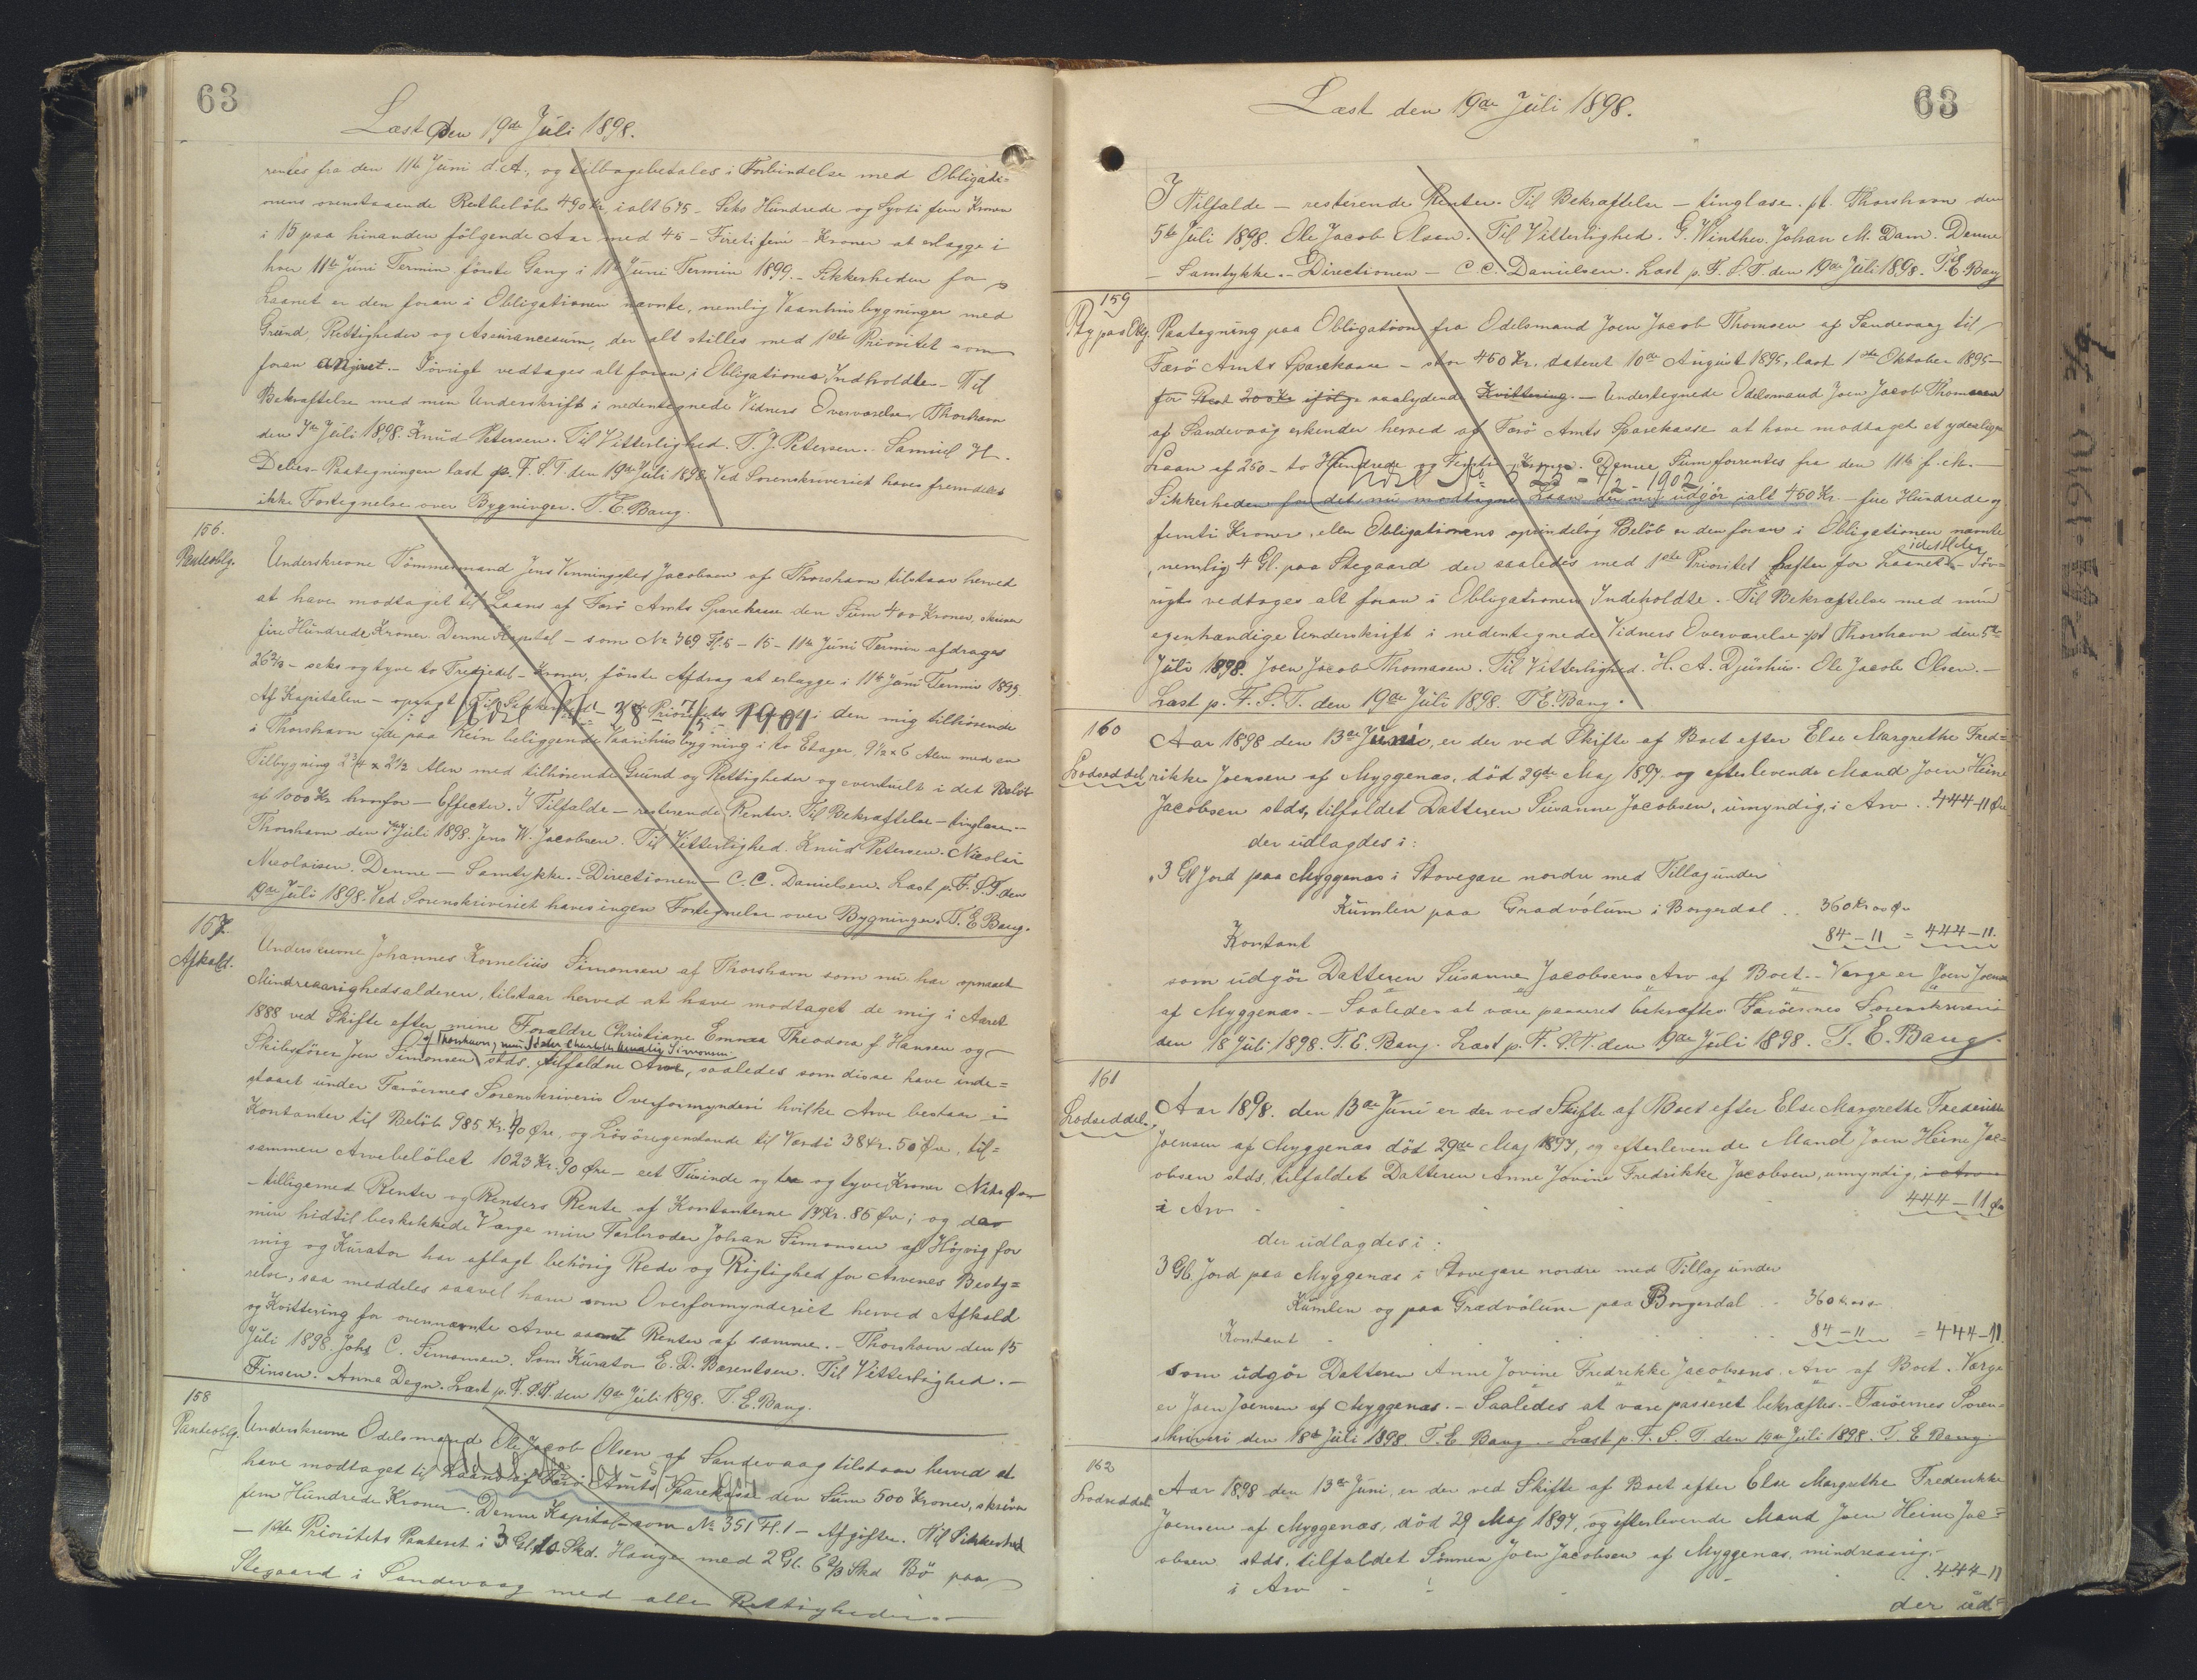 63
Læst den 19de Juli 1898.
rentes fra den 11te Juni d.A., og tilbagebetales i Forbindelse med Obligati=
onens ovenstaaende Restbeløb 490 Kr, ialt 675 - Seks Hundrede og Syvti fem Kroner
i 15 paa hinanden følgende Aar med 45 - Firetifem - Kroner at erlægge i
hver 11te Juni Termin første Gang i 11te Juni Termin 1899. - Sikkerheden for
Laanet er den foran i Obligationen nævnte, nemlig Vaanhusbygninger med
Grund, Rettigheder og Assurancesum, der alt stilles med 1ste Prioritet som
foran angivet. - Iøvrigt vedtages alt foran i Obligationen Indholdte. - Til
Bekræftelse med min Underskrift i nedentegnede Vidners Overværelse. Thorshavn
den 7de Juli 1898. Knud Petersen. Til Vitterlighed. T. J. Petersen. Samuel H.
Debes. Paategningen læst p. F. S. T. den 19de Juli 1898. Ved Sorenskriveriet haves fremdeles
ikke Fortegnelse over Bygninger. T. E. Bang.
156.
Panteoblg.
Underskrevne Tømmermand Jens Venningsted Jacobsen af Thorshavn tilstaar herved
at have modtaget til Laans af Færø Amts Sparekasse den Sum 400 Kroner, skriver
fire Hundrede Kroner. Denne Kapital - som No 369 Fl. 5 - 15 - 11te Juni Termin afdrages
26 2/3 - seks og tyve to Trediedel - Kroner, første Afdrag at erlægge i 11te Juni Termin 1899.
Af Kapitalen - opsagt. Til Sikkerhed - 1ste Prioritets Panteret i den mig tilhørende
Udsl No 38 7/5 - 1901
i Thorshavn ude paa Rein beliggende Vaanhusbygning i to Etager, 9 1/2 x 6 Alen med en
Tilbygning 2 3/4 x 2 1/2 Alen med tilhørende Grund og Rettigheder og eventuelt i det Beløb
af 1000 Kr hvorfor - Effecter. I Tilfælde - resterende Renter. Til Bekræftelse - tinglæses -
Thorshavn den 7de Juli 1898. Jens W. Jacobsen. Til Vitterlighed. Knud Petersen. Nicolai
Nicolaisen. Denne - Samtykke. - Directionen - C. C. Danielsen. Læst p. F. S. T. den
19de Juli 1898. Ved Sorenskriveriet haves ingen Fortegnelse over Bygninger. T. E. Bang.
157.
Afkald.
Underskrevne Johannes Kornelius Simonsen af Thorshavn som nu har opnaaet
Mindreaarighedsalderen, tilstaar herved at have modtaget de mig i Aaret
1888 ved Skifte efter mine Forældre Christiane Emma Theodora f. Hansen og
af Thorshavn, min Søster Charlotte Amalie Simonsen
Skibsfører Joen Simonsen stds. tilfaldne Arve, saaledes som disse have inde=
staaet under Færøernes Sorenskriveris Overformynderi hvilke Arve bestaar i
Kontanter til Beløb 985 Kr. 40 Øre, og Løsøregenstande til Værdi 38 Kr. 50 Øre, til=
sammen Arvebeløbet 1023 Kr. 90 Øre - eet Tusinde og tre og tyve Kroner Niti Øre
- tilligemed Renter og Renters Rente af Kontanterne 14 Kr. 86 Øre; og da
min hidtil beskikkede Værge min Farbroder Johan Simonsen af Højvig for
mig og Kurator har aflagt behørig Rede og Rigtighed for Arvenes Besty=
relse, saa meddeles saavel ham som Overformynderiet herved Afkald
og Kvittering for ovennævnte Arve samt Renter af samme. - Thorshavn den 15
Juli 1898. Johs C. Simonsen. Som Kurator E. D. Bærentsen. Til Vitterlighed. -
Finsen. Anna Degn. Læst p. F. S. T. den 19de Juli 1898. T. E. Bang.
158
Panteoblg.
Underskrevne Odelsmand Ole Jacob Olsen af Sandevaag tilstaar herved at
have modtaget til Laans af Færø Amts Sparekasse den Sum 500 Kroner, skriver
fem Hundrede Kroner. Denne Kapital - som No 351 Fl. 1 - Afgifter. Til Sikkerhed
- 1ste Prioritets Panteret i 3 Gl. 10 Skd. Hauge med 2 Gl. 6 2/3 Skd Bø paa
Stegaard i Sandevaag med alle Rettigheder. -
63
Læst den 19de Juli 1898.
I Tilfælde - resterende Renter. Til Bekræftelse - tinglæse. pt. Thorshavn den
5te Juli 1898. Ole Jacob Olsen. Til Vitterlighed. G. Winther. Johan M. Dam. Denne
- Samtykke. - Directionen - C. C. Danielsen. Læst p. F. S. T. den 19de Juli 1898. T. E. Bang
159
Ptg paa Oblg.
Paategning paa Obligation fra Odelsmand Joen Jacob Thomsen af Sandevaag til
Færø Amts Sparekasse - stor 450 Kr. dateret 10de August 1895, læst 1ste Oktober 1895 -
for Rest 200 Kr ifølge saalydende Kvittering. - Undertegnede Odelsmand Joen Jacob Thomsen
af Sandevaag erkender herved af Færø Amts Sparekasse at have modtaget et yderligere
Laan af 250 - to Hundrede og Femti - Kroner. Denne Sum forrentes fra den 11te f. M. -
Udsl No 23 - 4/2 - 1902
Sikkerheden for det nu modtagne Laan der nu udgør ialt 450 Kr. - fire Hundrede og
femti Kroner, eller Obligationens oprindelig Beløb er den foran i Obligationen nævnte
, nemlig 4 Gl. paa Stegaard der saaledes med 1ste Prioritet hæfter for Laanet. - Iøv=
idethele
rigt vedtages alt foran i Obligationen Indeholdte. - Til Bekræftelse med min
egenhændige Underskrift i nedentegnede Vidners Overværelse pt Thorshavn den 5te
Juli 1898. Joen Jacob Thomasen. Til Vitterlighed. H. A. Djurhus. Ole Jacob Olsen. -
Læst p. F. S. T. den 19de Juli 1898. T. E. Bang.
160
Lodseddel
Aar 1898 den 13de Juni, er der ved Skifte af Boet efter Else Margrethe Fred=
rikke Joensen af Myggenæs, død 29de Maj 1897 og efterlevende Mand Joen Heine
Jacobsen stds, tilfaldet Datteren Susanne Jacobsen, umyndig, i Arv .. 444-11 Øre
der udlagdes i:
3 Gl Jord paa Myggenæs i Stovegare nordre med Tillag under
Kumlen paa Gradvólum i Borgerdal .. 360 Kr 00 Ø
Kontant 84 - 11 = 444 - 11.
som udgør Datteren Susanne Jacobsens Arv af Boet. - Værge er Joen Joensen
af Myggenæs. - Saaledes at være passeret bekræftes Færøernes Sorenskriveri
den 18 Juli 1898. T. E. Bang. Læst p. F. S. T. den 19de Juli 1898. T. E. Bang.
161
Lodseddel.
Aar 1898. den 13de Juni er der ved Skifte af Boet efter Else Margrethe Frederikke
Joensen af Myggenæs død 29de Maj 1897, og efterlevende Mand Joen Heine Jac=
obsen stds, tilfaldet Datteren Anne Jovine Fredrikke Jacobsen, umyndig, i Arv
i Arv 444 - 11 Ø
der udlagdes i:
3 Gl. Jord paa Myggenæs i Stovegare nordre med Tillag under
Kumlen og paa Grædvólum paa Borgerdal .. 360 Kr 00 Ø
Kontant 84 - 11 = 444 - 11.
som udgør Datteren Anne Jovine Fredrikke Jacobsens Arv af Boet. Værge
er Joen Joensen af Myggenæs. - Saaledes at være passeret bekræftes. - Færøernes Soren-
skriveri den 18de Juli 1898. T. E. Bang. - Læst p. F. S. T. den 19de Juli 1898. T. E. Bang.
162
Lodseddel
Aar 1898 den 13de Juni, er der ved Skifte af Boet efter Else Margrethe Frederikke
Joensen af Myggenæs, død 29 Maj 1897, og efterlevende Mand Joen Heine Jac=
obsen stds. tilfaldet Sønnen Joen Jacobsen af Myggenæs, mindreaarig. -
i Arv 444 - 11
der ud=